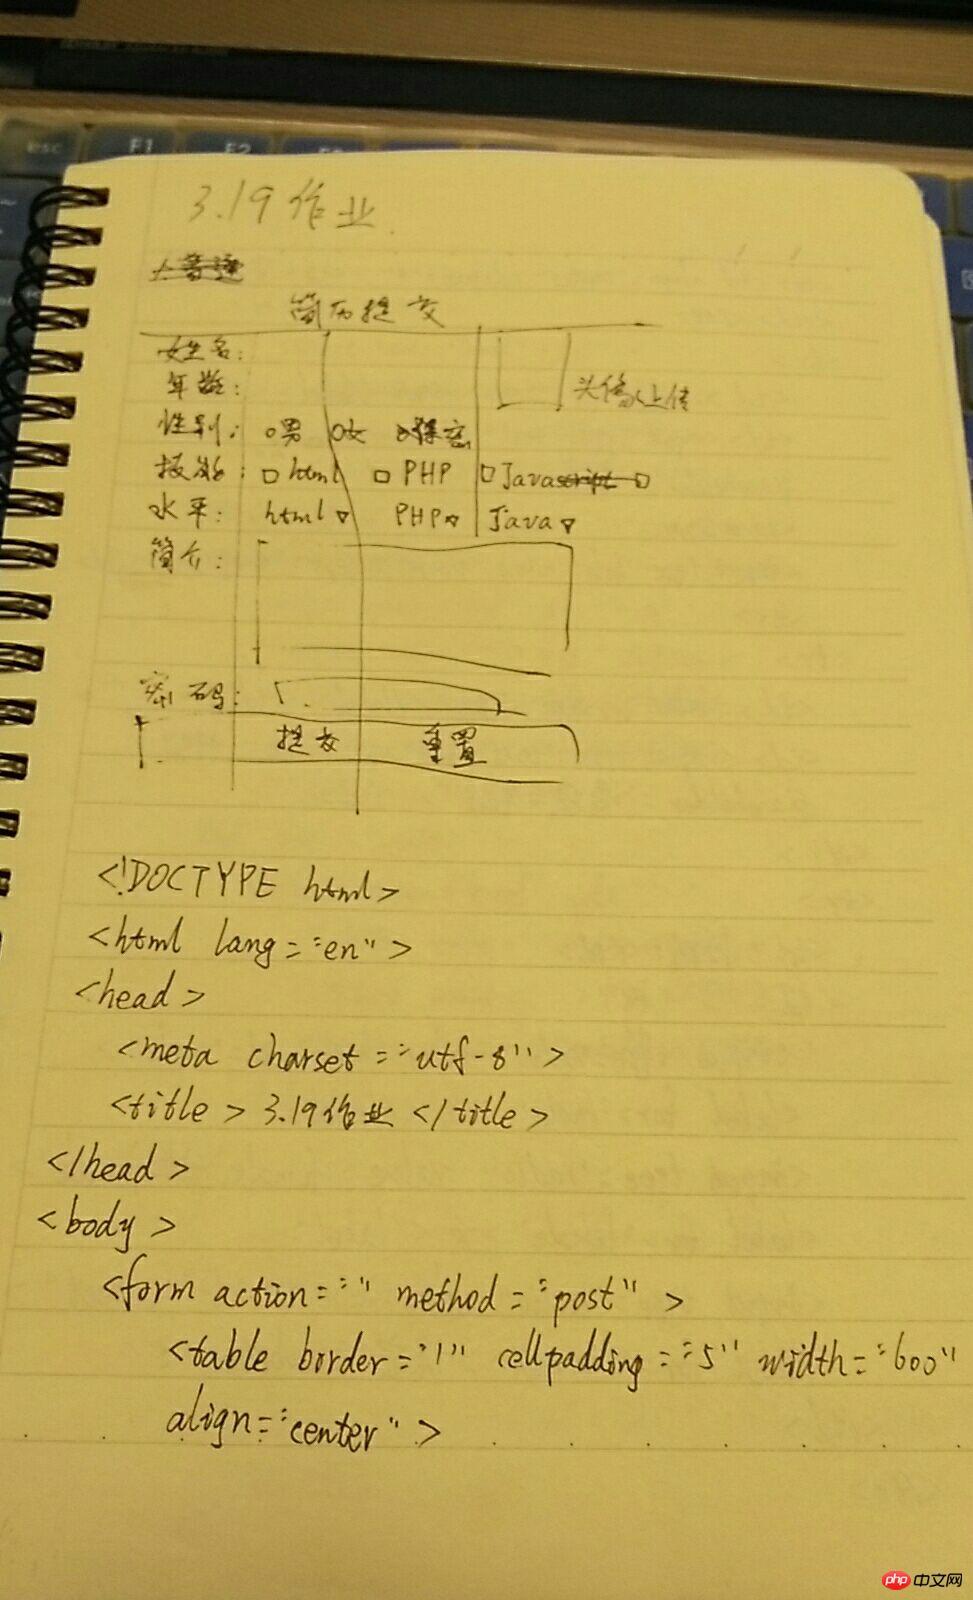 esc F1 F2
3.19作业
简历提交
姓名:
年龄:
头像上传
性别: 男 女 保密
技能: html PHP Javascript
水平: html PHP Java
简介:
密码:
提交 重置
<!DOCTYPE html>
<html lang="en">
<head>
<meta charset="utf-8">
<title>3.19作业</title>
</head>
<body>
<form action="" method="post">
<table border="1" cellpadding="5" width="600"
align="center">
php 中文网